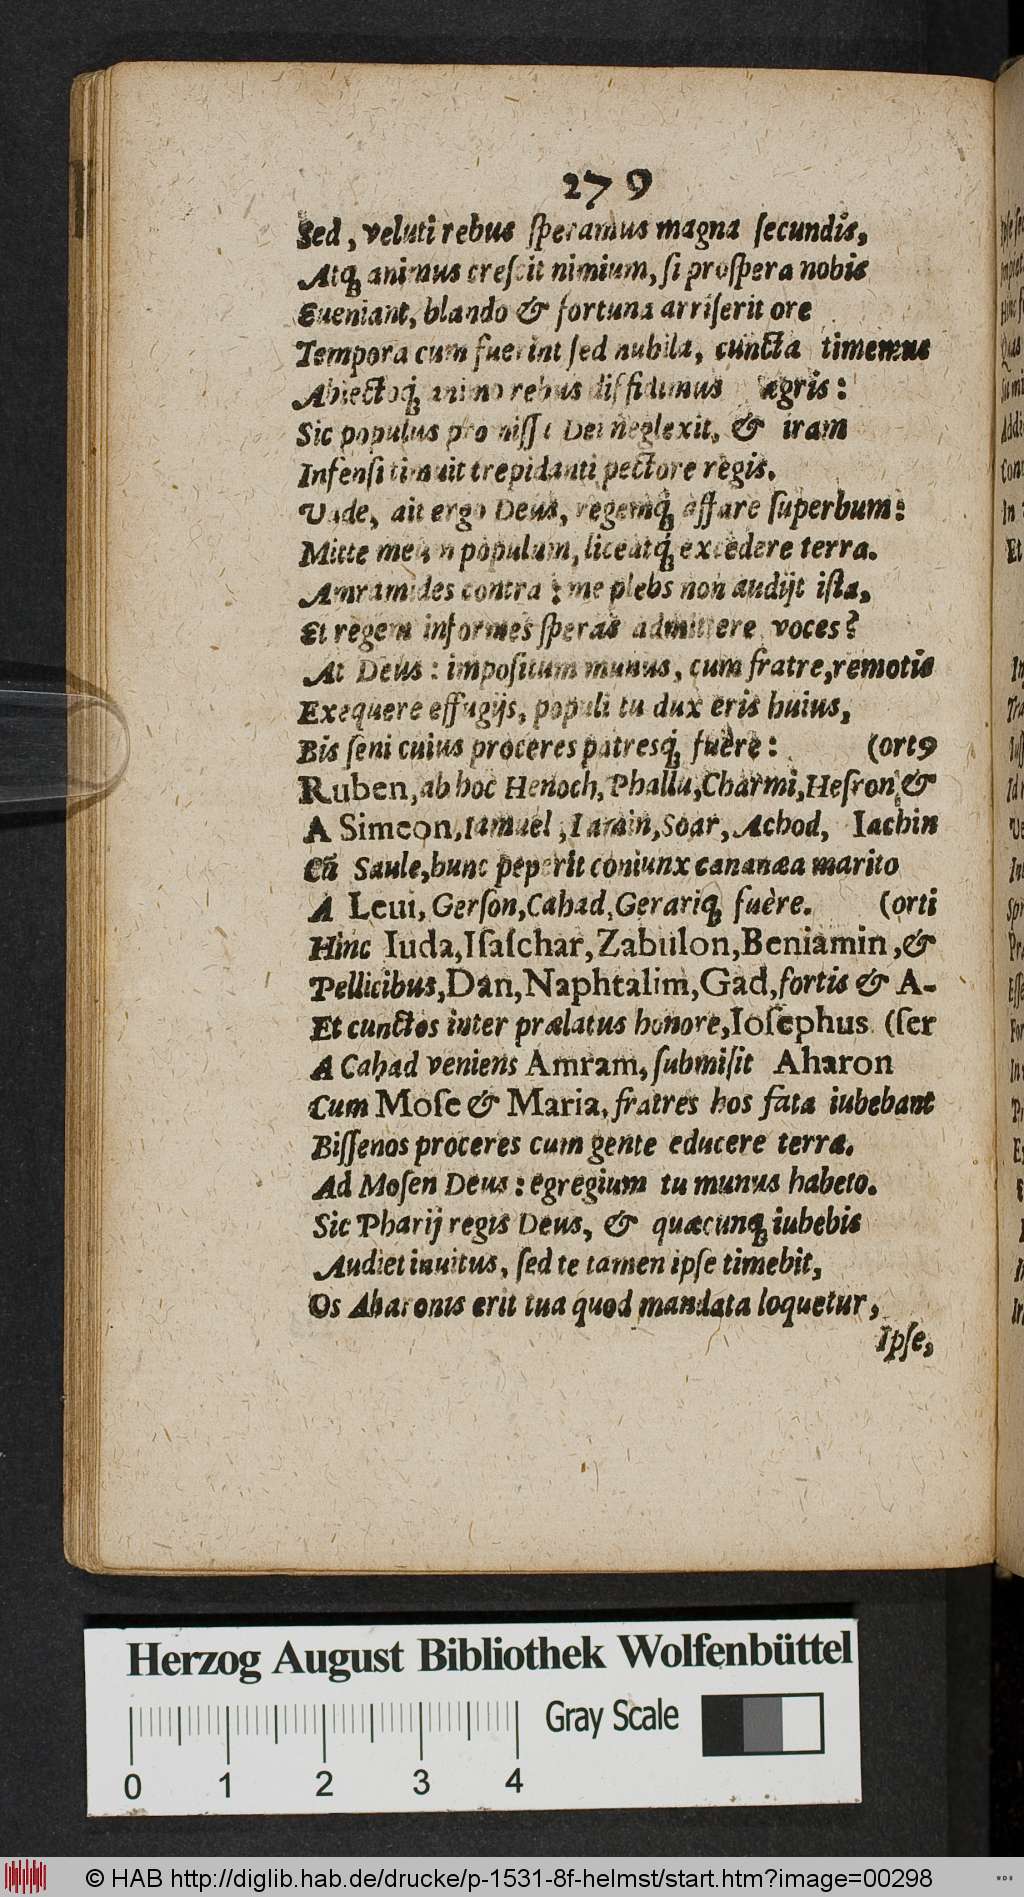 279
Sed, veluti rebus ſperamus magna ſecundis,
Atq; animus creſcit nimium, ſi proſpera nobis
Eueniant, blando & fortuna arriſerit ore
Tempora cum fuerint ſed nubila, cuncta timemus
Abiectoq́; animo rebus diffidimus ægris:
Sic populus promiſſa Dei neglexit, & iram
Infenſi timuit trepidanti pectore regis.
Vade, ait ergo Deus, regemq́; affare ſuperbum:
Mitte meum populum, liceatq́; excedere terra.
Amramides contra: me plebs non audijt iſta,
Et regem informes ſperas admittere voces?
At Deus: impoſitum munus, cum fratre, remotis
Exequere effugijs, populi tu dux eris huius,
Bis ſeni cuius proceres patresq́; fuère: (ort9
Ruben, ab hoc Henoch, Phallu, Charmi, Heſron, &
A Simeon, Iamuel, Iamin, Soar, Achod, Iachin
Cũ Saule, hunc peperit coniunx cananæa marito
A Leui, Gerſon, Cahad, Gerariq; fuère. (orti
Hinc Iuda, Iſaſchar, Zabulon, Beniamin, &
Pellicibus, Dan, Naphtalim, Gad, fortis & A-
Et cunctos inter prælatus honore, Ioſephus (ſer
A Cahad veniens Amram, ſubmiſit Aharon
Cum Moſe & Maria, fratres hos fata iubebant
Biſſenos proceres cum gente educere terra.
Ad Moſen Deus: egregium tu munus habeto.
Sic Pharij regis Deus, & quæcunq; iubebis
Audiet inuitus, ſed te tamen ipſe timebit,
Os Aharonis erit tua quod mandata loquetur,
Ipſe,
Herzog August Bibliothek Wolfenbüttel
Gray Scale
0 1 2 3 4
© HAB http://diglib.hab.de/drucke/p-1531-8f-helmst/start.htm?image=00298